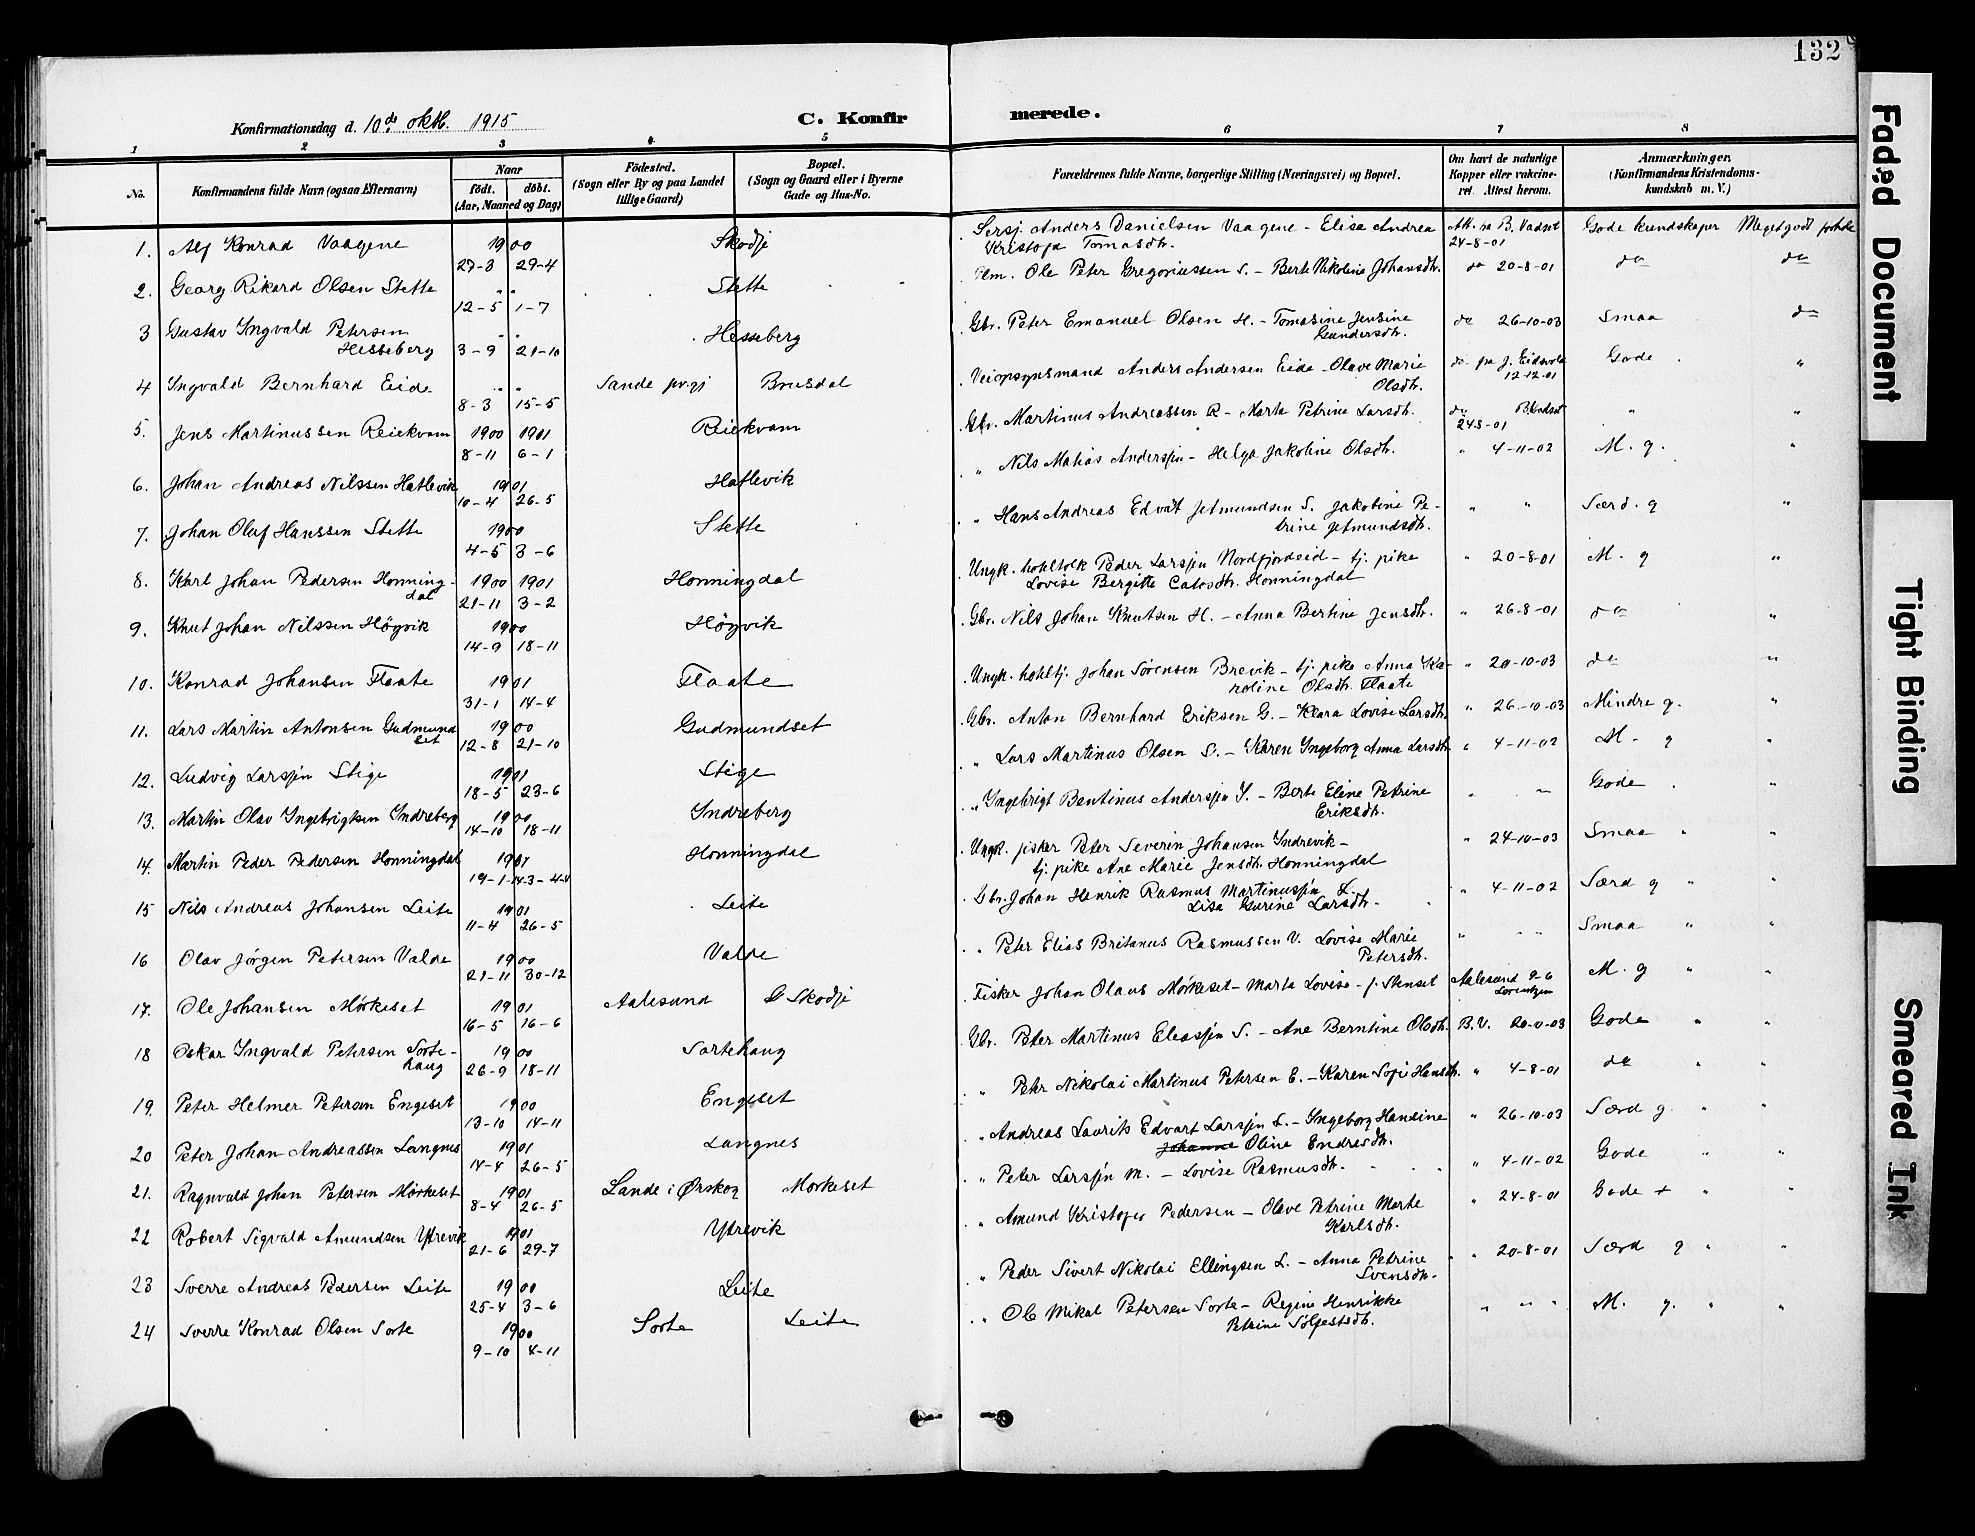 132
Konfirmationsdag d. 10de oktb. 1915
C. Konfir
merede.
1 2 3 4 5 6 7 8
No.
Konfirmandens fulde Navn (ogsaa Efternavn)
Naar
födt. döbt.
(Aar, Maaned og Dag)
Födested.
(Sogn eller By og paa Landet
tillige Gaard)
Bopæl.
(Sogn og Gaard eller i Byerne
Gade og Hus-No.
Forældrenes fulde Navne, borgerlige Stilling (Næringsvei) og Bopæl.
Om havt de naturlige
Kopper eller vakcine-
ret. Attest herom.
Anmærkninger.
(Konfirmandens Kristendoms-
kundskab m. V.)
1. Alf Konrad Vaagene 1900 Skodje
27-3 29-4
Sersj. Anders Danielsen Vaagene - Elise Andrea
Kristofa Tomasdtr.
Att. fra B. Vadset
24-8-01
Gode kundskaper Meget godt forhold
2. Georg Rikard Olsen Stette " " Stette
12-5 1-7
Ole Peter Gregoriussen S. - Berte Nikoline Johansdtr. do 20-8-01 do do
3 Gustav Yngvald Petersen " "
Hesseberg 3-9 21-10 Hesseberg
Gbr. Peter Emanuel Olsen H. - Tomasine Jensine
Gundersdtr.
do 26-10-03 Smaa do
4 Yngvald Bernhard Eide " " Sande pr.gj Brusdal
8-3 15-5
Veiopsynsmand Anders Andersen Eide - Olave Marie
Olsdtr.
do fra J. Eidsvold
12-12-01
Gode "
5. Jens Martinussen Reiekvam 1900 1901 Reiekvam
8-11 6-1
Gbr. Martinus Andreassen R - Marta Petrine Larsdtr.
do B. Vadset
24-8-01
" "
6. Johan Andreas Nilssen Hatlevik 1901 Hatlevik
10-4 26-5
" Nils Matias Andersjn - Helga Jakoline Olsdtr. " 4-11-02 M. g. "
7. Johan Olaf Hanssen Stette 1900 Stette
4-5 3-6
" Hans Andreas Edvat Jetmundsen S. Jakobine Pe-
trine Jetmundsdtr.
" " Særd. g "
8. Karl Johan Pedersen Honning- 1900 1901 Honningdal
dal 21-11 3-2
Ungk. Peder Larsjn Nordfjordeid - tj. pike
Lovise Bergitte Honningdal
" 20-8-01 M. g "
9. Knut Johan Nilssen Høgvik 1900 Høgvik
14-9 18-11
Gbr. Nils Johan Knutsen H. - Anna Bertine Jensdtr. " 26-8-01 do "
10. Konrad Johansen Flaate 1901 Flaate
31-1 14-4
Ungk. Johan Sørensen Brevik - tj. pike Anna Ka-
roline Olsdtr. Flaate
" 20-10-03 do "
11. Lars Martin Antonsen Gudmund 1900 Gudmundset
set 12-8 21-10
Gbr. Anton Bernhard Eriksen G. - Klara Lovise Larsdtr. " 26-10-03 Mindre g. "
12. Ludvig Larsjn Stige 1901 Stige
18-5 23-6
" Lars Martinus Olsen S. - Karen Yngeborg Anna Larsdtr " 4-11-02 M. g "
13. Martin Olav Yngebrigtsen Yndreberg 1900 Yndreberg
14-10 18-11
" Yngebrigt Bentinus Andersjn Y. - Berte Eline Petrine
Eriksdtr.
" " Gode "
14. Martin Peder Pedersen Honningdal 1901 Honningdal
19-1
Ungk. fisker Peter Severin Johansen Yndrevik -
tj. pike Ane Marie Jensdtr. Honningdal
" 24-10-03 Smaa " "
15 Nils Andreas Johansen Leite 1901 Leite
11-4 26-5
Gbr. Johan Henrik Rasmus Martinussjn L.
Lisa Gurine Larsdtr.
" 4-11-02 Særd g " "
16 Olav Jørgen Petersen Valde 1900 Valde
21-11 30-12
" Peter Elias Britanus Rasmussen V. Lovise Marie
Petersdtr.
" " " Smaa " "
17. Ole Johansen Mørkeset 1901 Aalesund G Skodje
16-5 16-6
Fisker Johan Olaus Mørkeset - Marta Lovise - f. Stenset
Aalesund 9-6
Lorentzen
M. g " "
18 Oskar Yngvald Petersen Sorte- 1900 Sortehaug
haug 26-9 18-11
Gbr. Peter Martinus Eleasjn S. - Ane Berntine Olsdtr. B.V. Gode " "
19. Peter Helmer Petersen Engeset 1900 Engeset
13-10 14-11
" Petr Nikolai Martinus Petersen E. - Karen Sofie Hansdtr. " 4-8-01 do " "
20 Peter Johan Andreassen Langnes 1901 Langnes
14-4 26-5
" Andreas Laurits Edvart Larsjn L. - Yngeborg Hansine
Johanne Oline Endresdtr.
" 26-10-03 Særd g. " "
21. Ragnvald Johan Petersen Mørkeset 1901 Sande i Ørskog Mørkeset
8-4 26-5
" Peter Larsjn M. - Lovise Rasmusdtr. " 4-11-02 Gode " "
22 Robert Sigvald Amundsen Ytrevik 1901 Ytrevik
21-6 29-7
" Amund Kristofer Pedersen - Olave Petrine Marte
Karlsdtr.
" 24-8-01 Gode + " "
23 Sverre Andreas Pedersen Leite 1900 Leite
25-4 3-6
" Peder Sivert Nikolai Ellingsen L. - Anna Petrine
Svensdtr.
" 20-8-01 Særd g " "
24 Sverre Konrad Olsen Sorte 1900 Sorte Leite
9-10 4-11
" Ole Mikal Petersen Sorte - Regine Henrikke
Petrine Sølfestsdtr.
" " " M. g. " "
Faded Document
Tight Binding
Smeared Ink